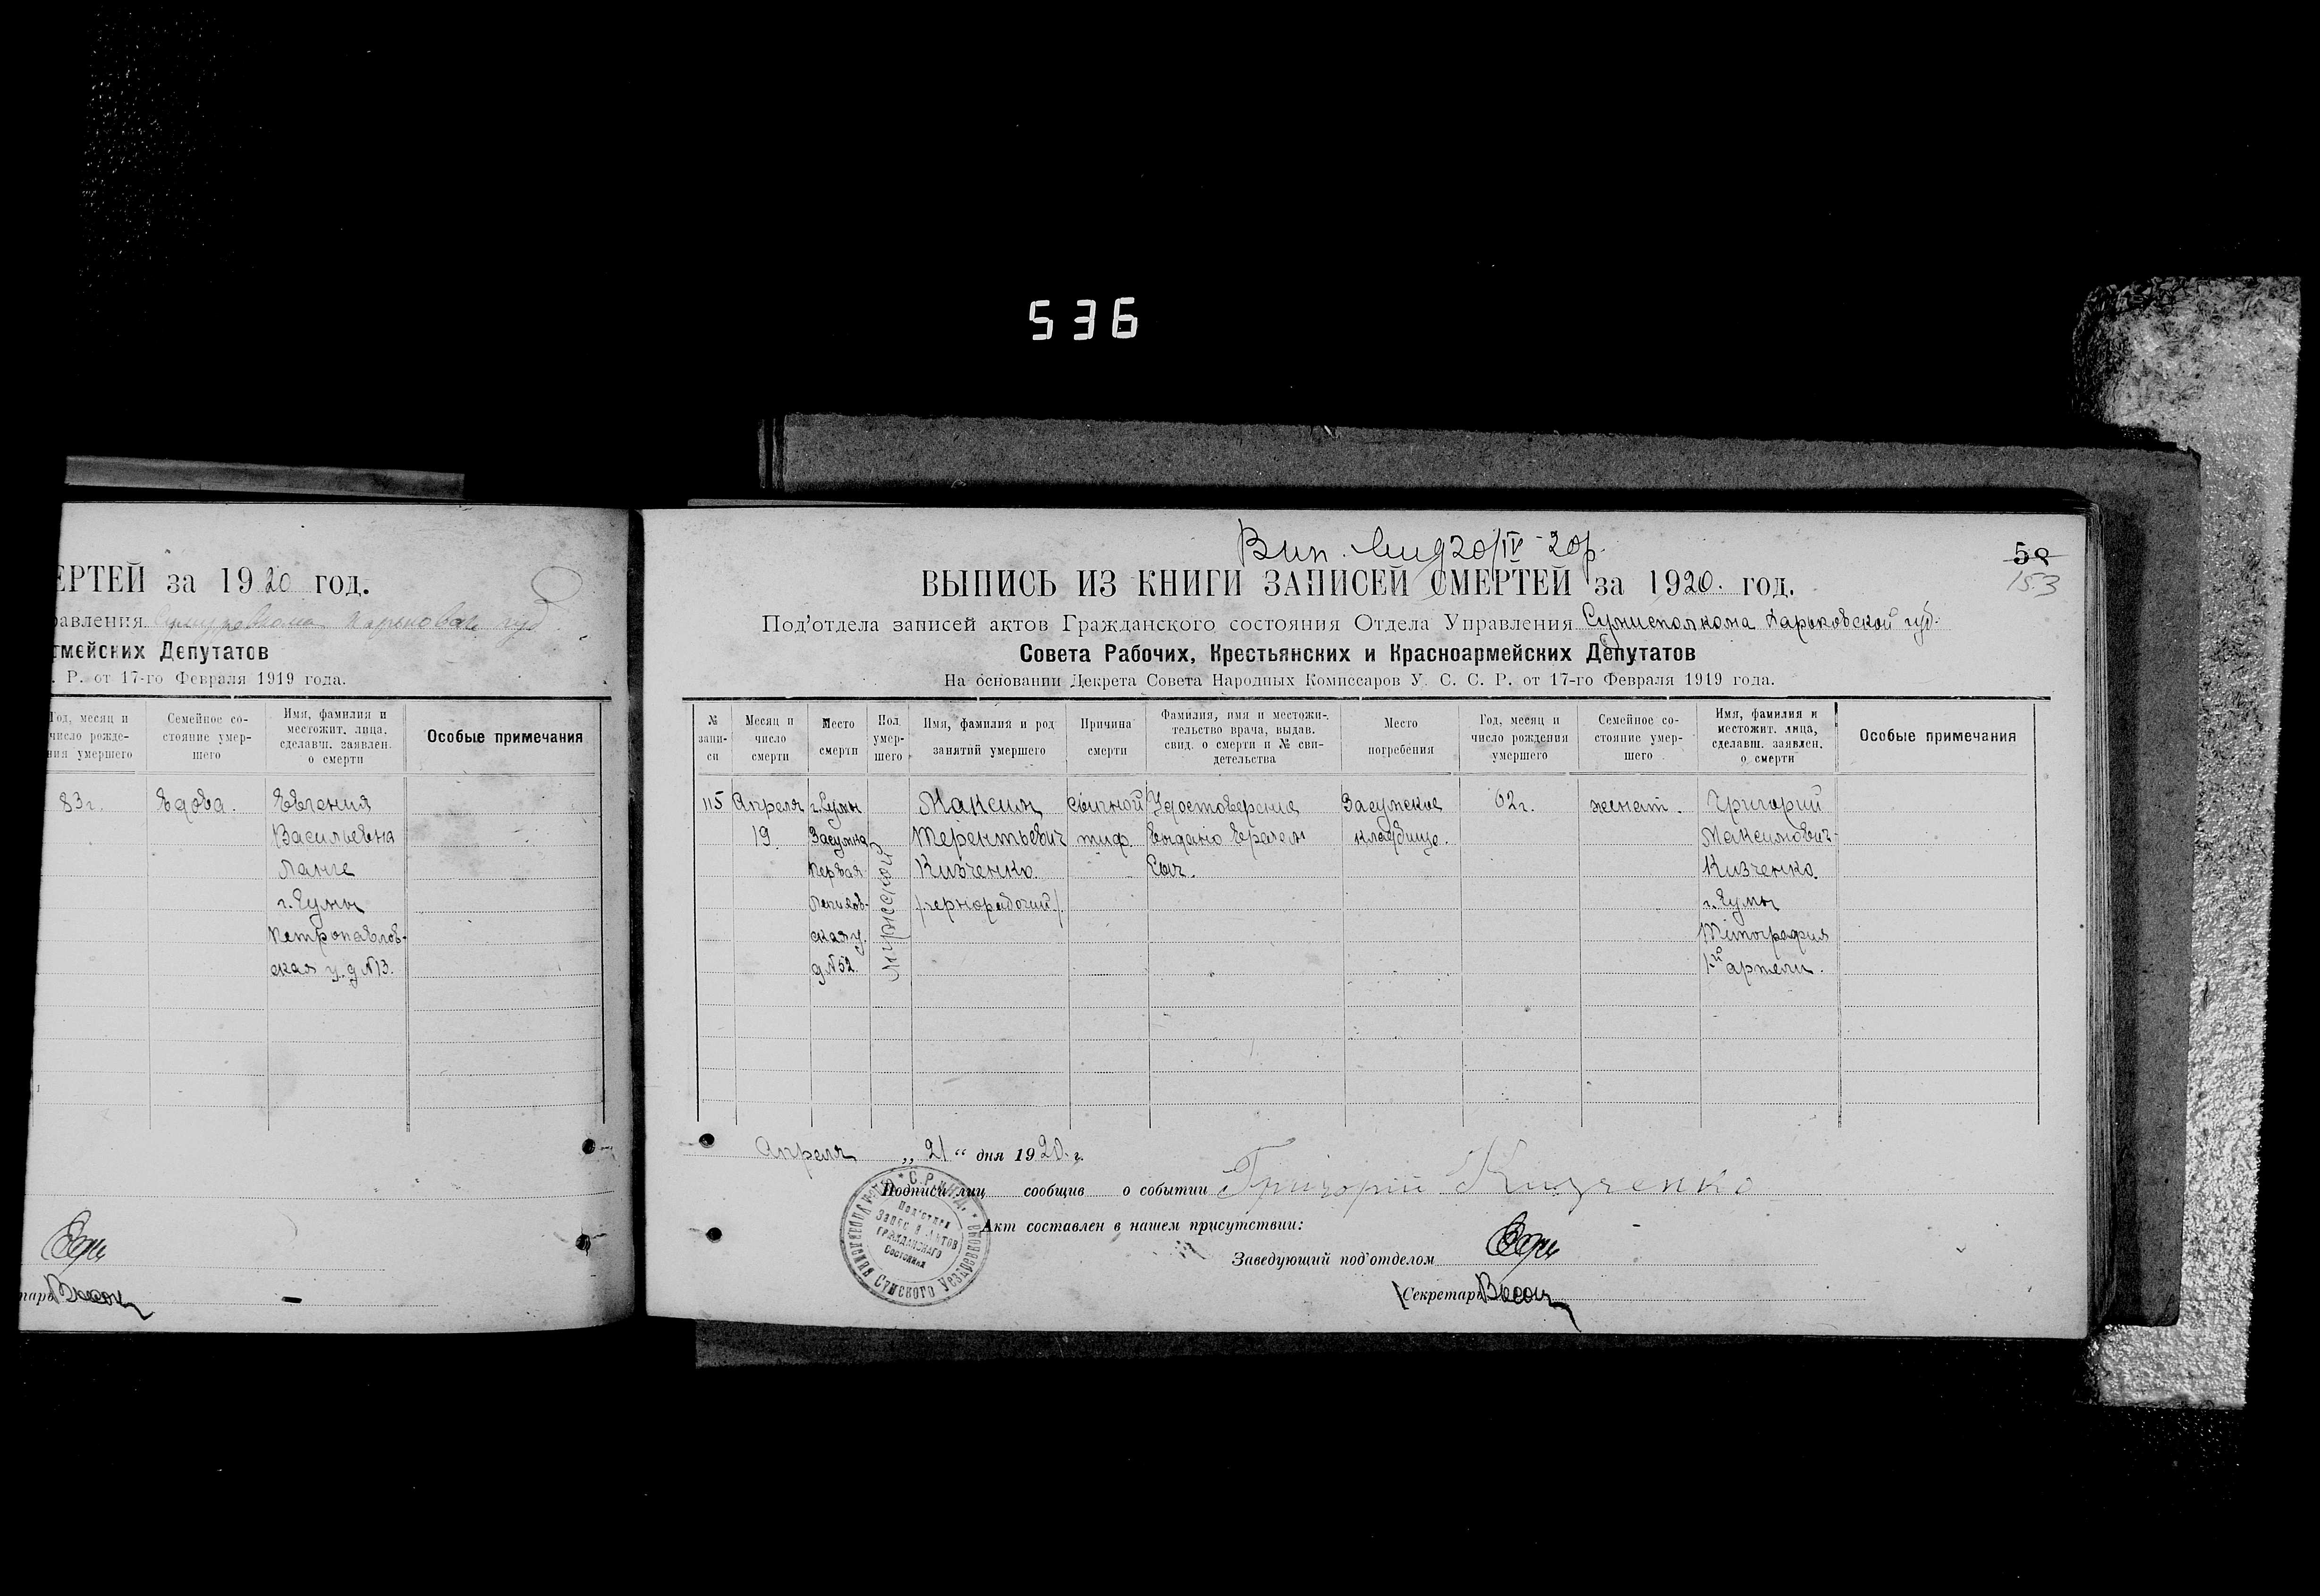 536
ЕРТЕЙ за 1920 год.
равления
гмейских Депутатов
. Р. от 17-го Февраля 1919 года.
Год, месяц и число рожде- ния умершего
Семейное со- стояние умер- шего
Имя, фамилия и местожит. лица, сделавш. заявлен. о смерти
Особые примечания
83 г.
вдова.
Евгения
Васильевна
Ланге
г. Сумы
Петропавлов-
ская у. д №13.
тарь
Вип. 20/IV-20р.
58
153
ВЫПИСЬ ИЗ КНИГИ ЗАПИСЕЙ СМЕРТЕЙ за 1920. год.
Под'отдела записей актов Гражданского состояния Отдела Управления Сумисполкома Харьковской губ.
Совета Рабочих, Крестьянских и Красноармейских Депутатов
На основании Декрета Совета Народных Комиссаров У. С. С. Р. от 17-го Февраля 1919 года.
№ запи- си
Месяц и число смерти
Место смерти
Пол умер- шего
Имя, фамилия и род занятий умершего
Причина смерти
Фамилия, имя и местожи- тельство врача, выдав. свид. о смерти и № сви- детельства
Место погребения
Год, месяц и число рождения умершего
Семейное со- стояние умер- шего
Имя, фамилия и местожит. лица, сделавш. заявлен. о смерти
Особые примечания
115
Апреля
19.
г. Сумы
Засумка
Первая
ская у.
д №52.
Мужской
Максим
Терентьевич
Кизченко.
/чернорабочий/.
сыпной
тиф.
Удостоверение
выдано врачем
Сыч.
Засумское
кладбище.
62 г.
женат.
Григорий
Максимович
Кизченко.
г. Сумы
Типография
1-й артели.
Апреля „21“ дня 1920 г.
Подписи лиц сообщив о событии Григорій Кизченко
Акт составлен в нашем присутствии:
Заведующий под'отделом
Секретарь
Под'отдел
Записи Актов
Гражданского
Состояния
Сумского Уездревкома